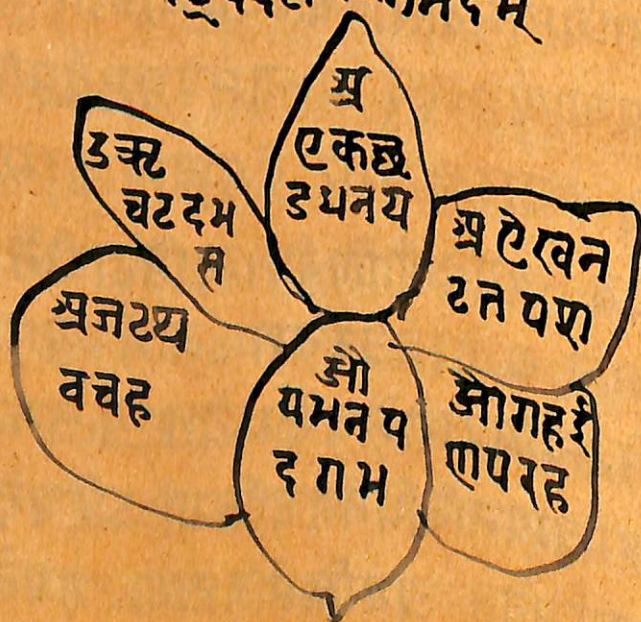 अ
एकछ
डधनय
उऋ
चटदभ
स
अ ऐखन
टतपश
अजटथ
वचह
ओ
पमनप
दगभ
औगहई
णपरह